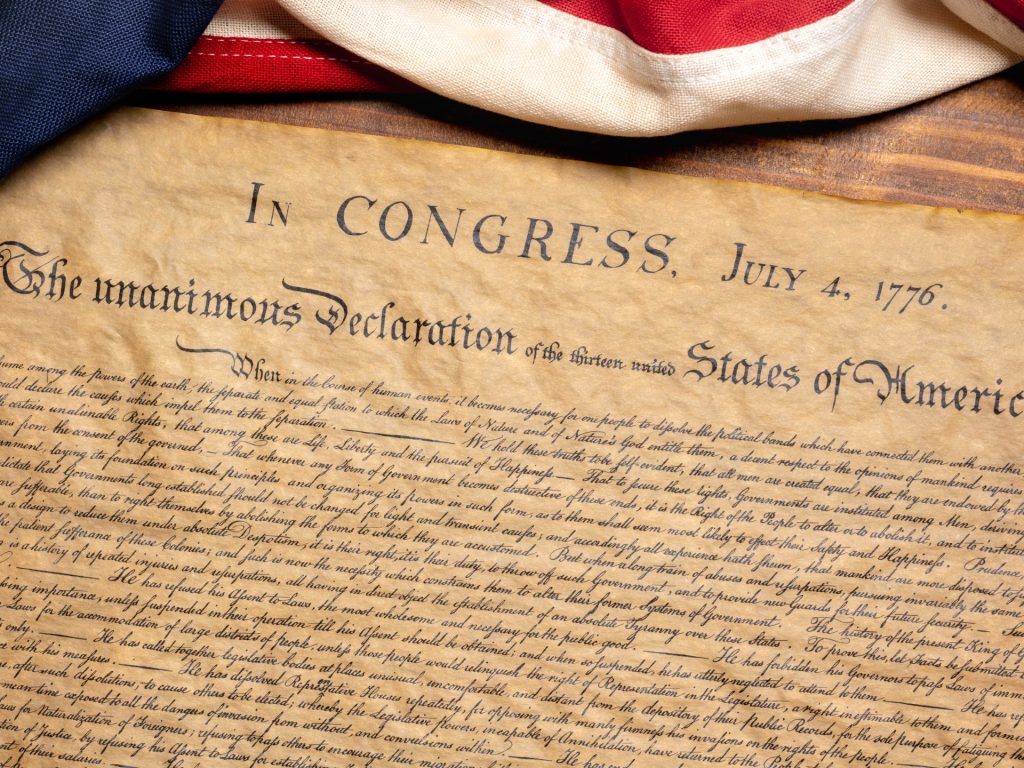 In CONGRESS, July 4, 1776.
The unanimous Declaration of the thirteen united States of Americ
When in the Course of human events, it becomes necessary for one people to dissolve the political bands which have connected them with another
ume among the powers of the earth, the separate and equal station to which the Laws of Nature and of Nature's God entitle them, a decent respect to the opinions of mankind requires
ould declare the causes which impel them to the separation. —— We hold these truths to be self-evident, that all men are created equal, that they are endowed by th
certain unalienable Rights, that among these are Life, Liberty and the pursuit of Happiness — That to secure these rights, Governments are instituted among Men, deriving
ers from the consent of the governed, — That whenever any Form of Government becomes destructive of these ends, it is the Right of the People to alter or to abolish it, and to institut
rnment, laying its foundation on such principles and organizing its powers in such form, as to them shall seem most likely to effect their Safety and Happiness. Prudence,
dictate that Governments long established should not be changed for light and transient causes; and accordingly all experience hath shewn, that mankind are more disposed to
are sufferable, than to right themselves by abolishing the forms to which they are accustomed. But when a long train of abuses and usurpations, pursuing invariably the same
a design to reduce them under absolute Despotism, it is their right, it is their duty, to throw off such Government, and to provide new Guards for their future security. —
the patient sufferance of these Colonies; and such is now the necessity which constrains them to alter their former Systems of Government. The history of the present King of
is a history of repeated injuries and usurpations, all having in direct object the establishment of an absolute Tyranny over these States. To prove this, let Facts be submitted
—— He has refused his Assent to Laws, the most wholesome and necessary for the public good. —— He has forbidden his Governors to pass Laws of imm
sing importance, unless suspended in their operation till his Assent should be obtained; and when so suspended, he has utterly neglected to attend to them. —— He has
Laws for the accommodation of large districts of people, unless those people would relinquish the right of Representation in the Legislature, a right inestimable to them and formid
only. —— He has called together legislative bodies at places unusual, uncomfortable, and distant from the depository of their Public Records, for the sole purpose of fatiguing
with his measures. —— He has dissolved Representative Houses repeatedly, for opposing with manly firmness his invasions on the rights of the people. ——
after such dissolutions, to cause others to be elected; whereby the Legislative powers, incapable of Annihilation, have returned to the People
mean time exposed to all the dangers of invasion from without, and convulsions within. ——
for Naturalization of Foreigners; refusing to pass others to encourage their
of justice, by refusing his Assent to Laws for
of their salaries. ——